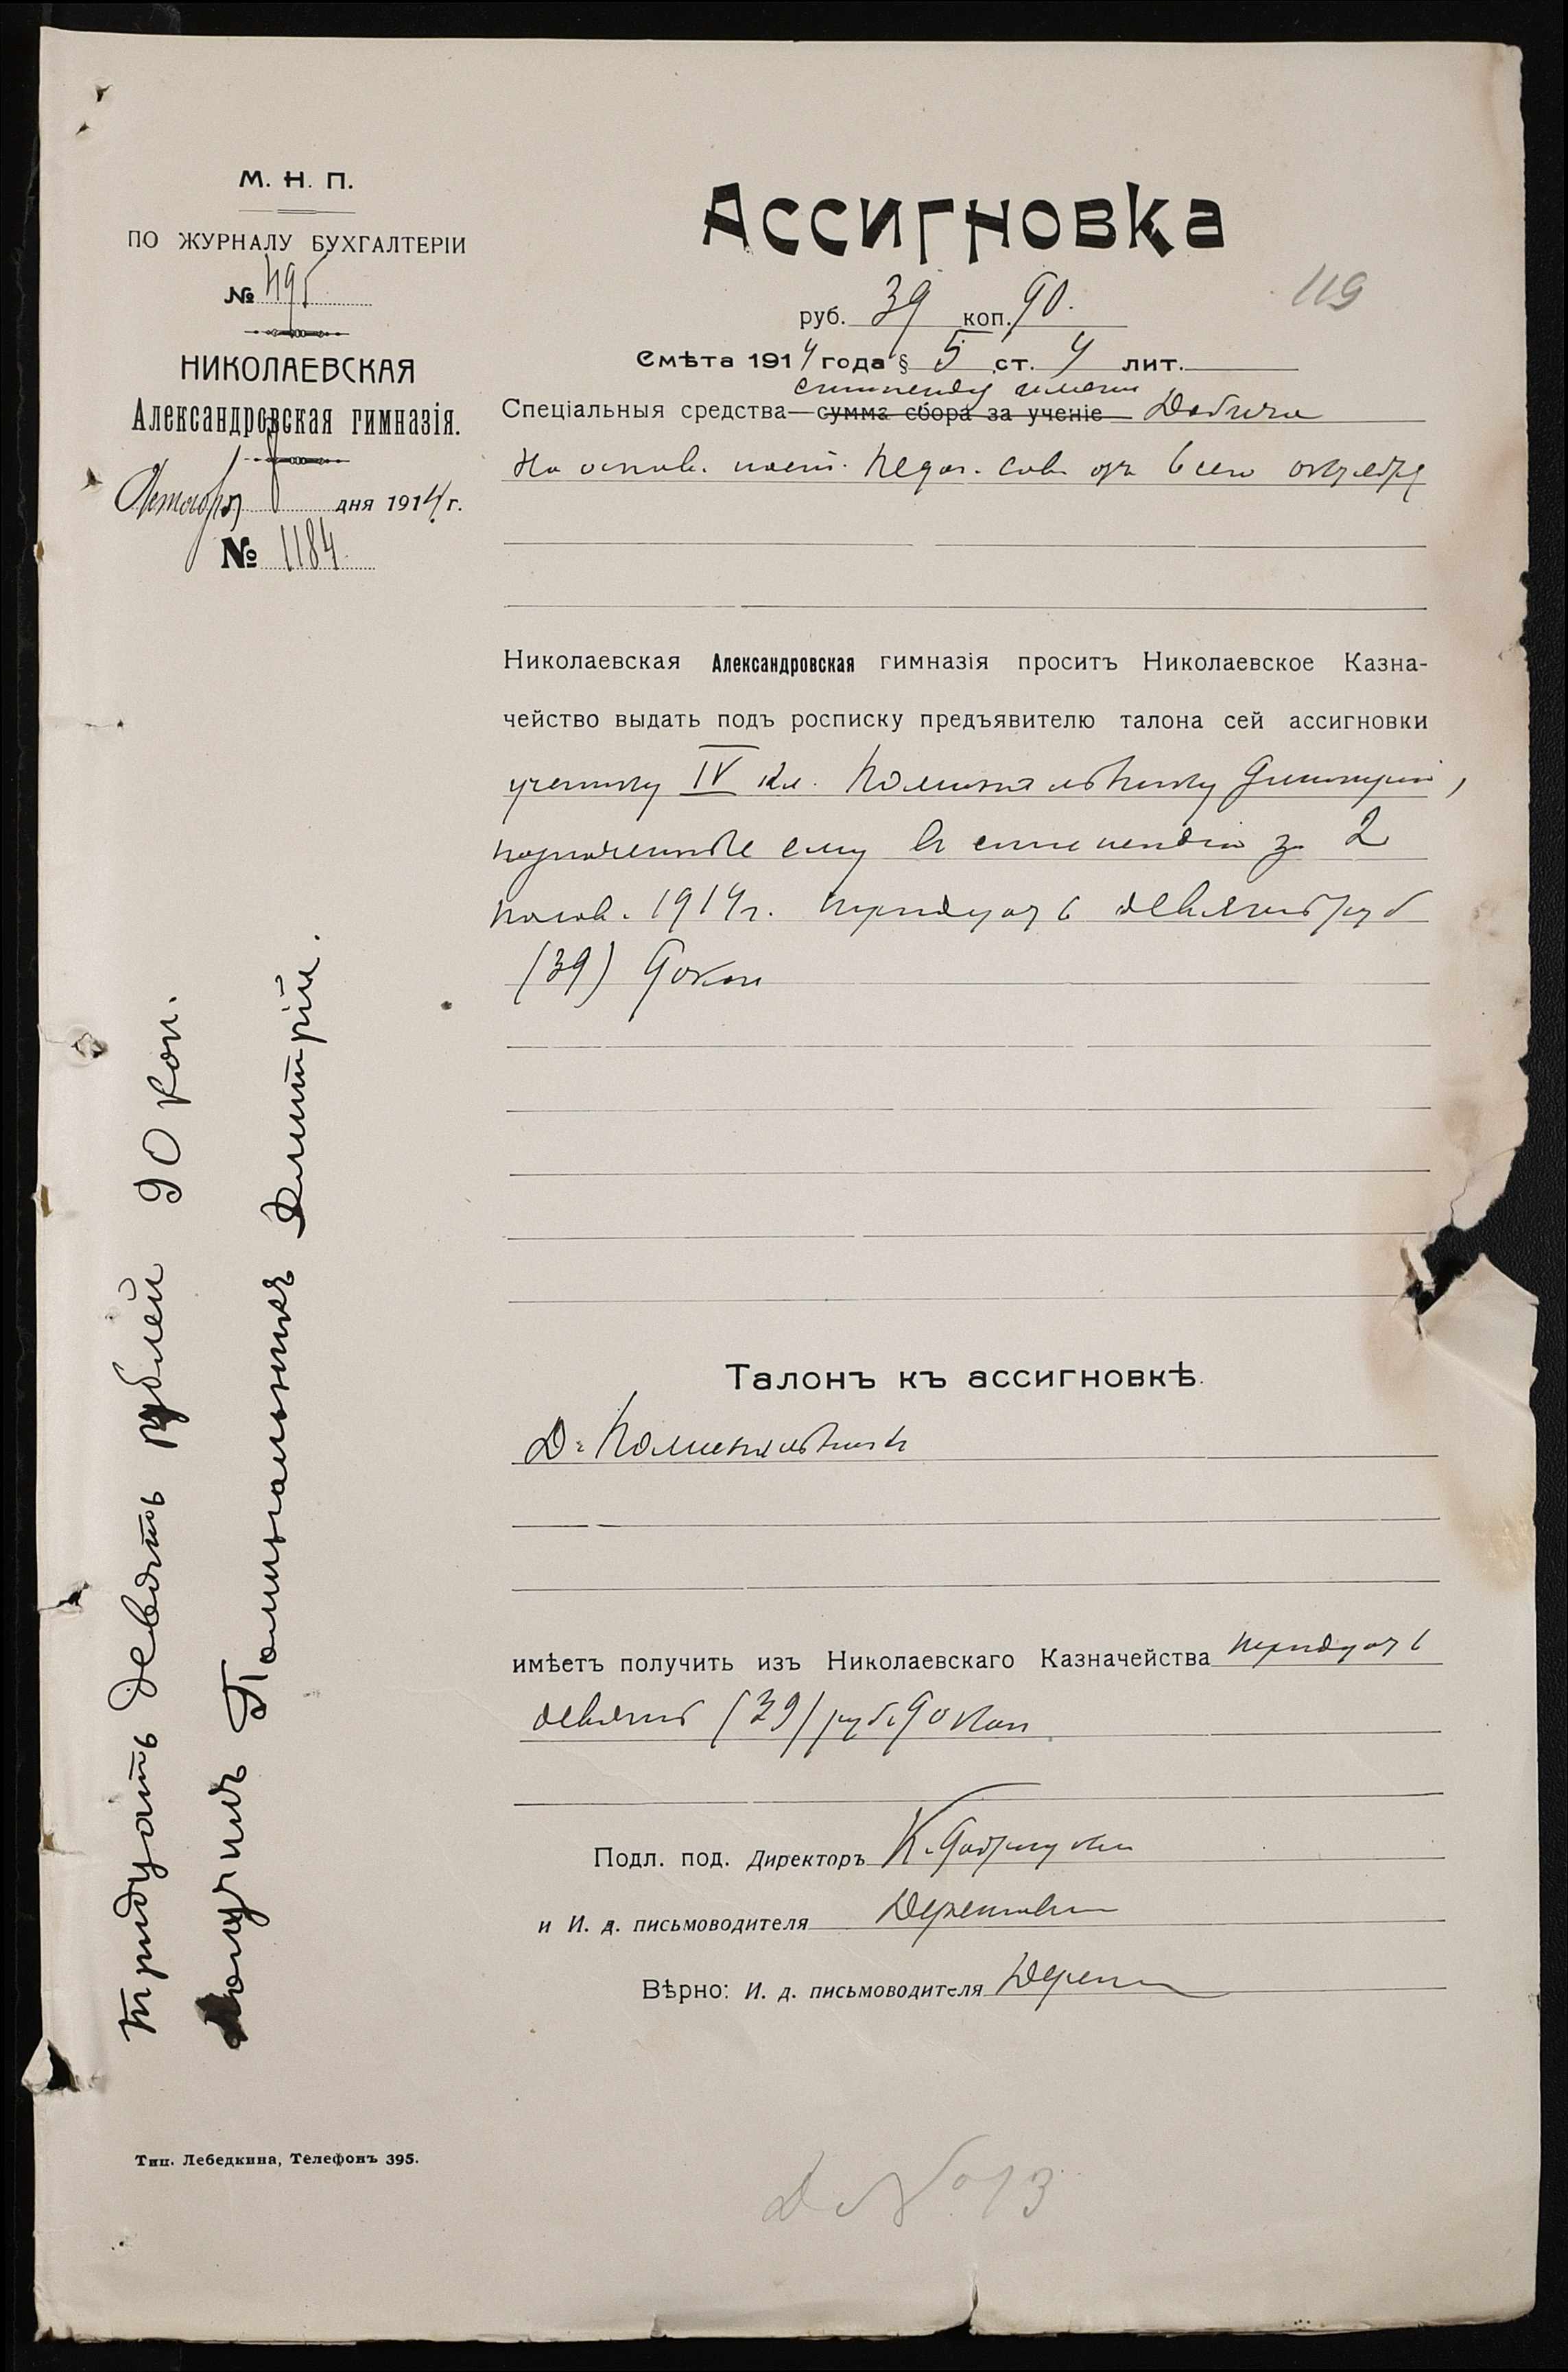 М. Н. П.
ПО ЖУРНАЛУ БУХГАЛТЕРІИ
№ 495
НИКОЛАЕВСКАЯ
Александровская гимназія.
Октября 8 дня 1914 г.
№ 1184
Ассигновка
119
руб. 39 коп. 90.
Смѣта 1914 года § 5 ст. 4 лит.
стипендія имени
Спеціальныя средства—сумма сбора за ученіе
На основ. пост. Педаг. Сов. отъ 6 сего октября
Николаевская Александровская гимназія проситъ Николаевское Казна-
чейство выдать подъ росписку предъявителю талона сей ассигновки
ученику IV кл. Поминальнику Димитрію,
назначенные ему въ стипендію за 2
полов. 1914 г. тридцать девять руб
(39) 90 коп
Талонъ къ ассигновкѣ.
Д. Поминальникъ
имѣетъ получить изъ Николаевскаго Казначейства тридцать
девять (39) руб. 90 коп.
Подл. под. Директоръ К.
и И. д. письмоводителя
Вѣрно: И. д. письмоводителя
Тридцать девять рублей 90 коп.
получилъ Поминальникъ Димитрій.
Тип. Лебедкина, Телефонъ 395.
Д № 13